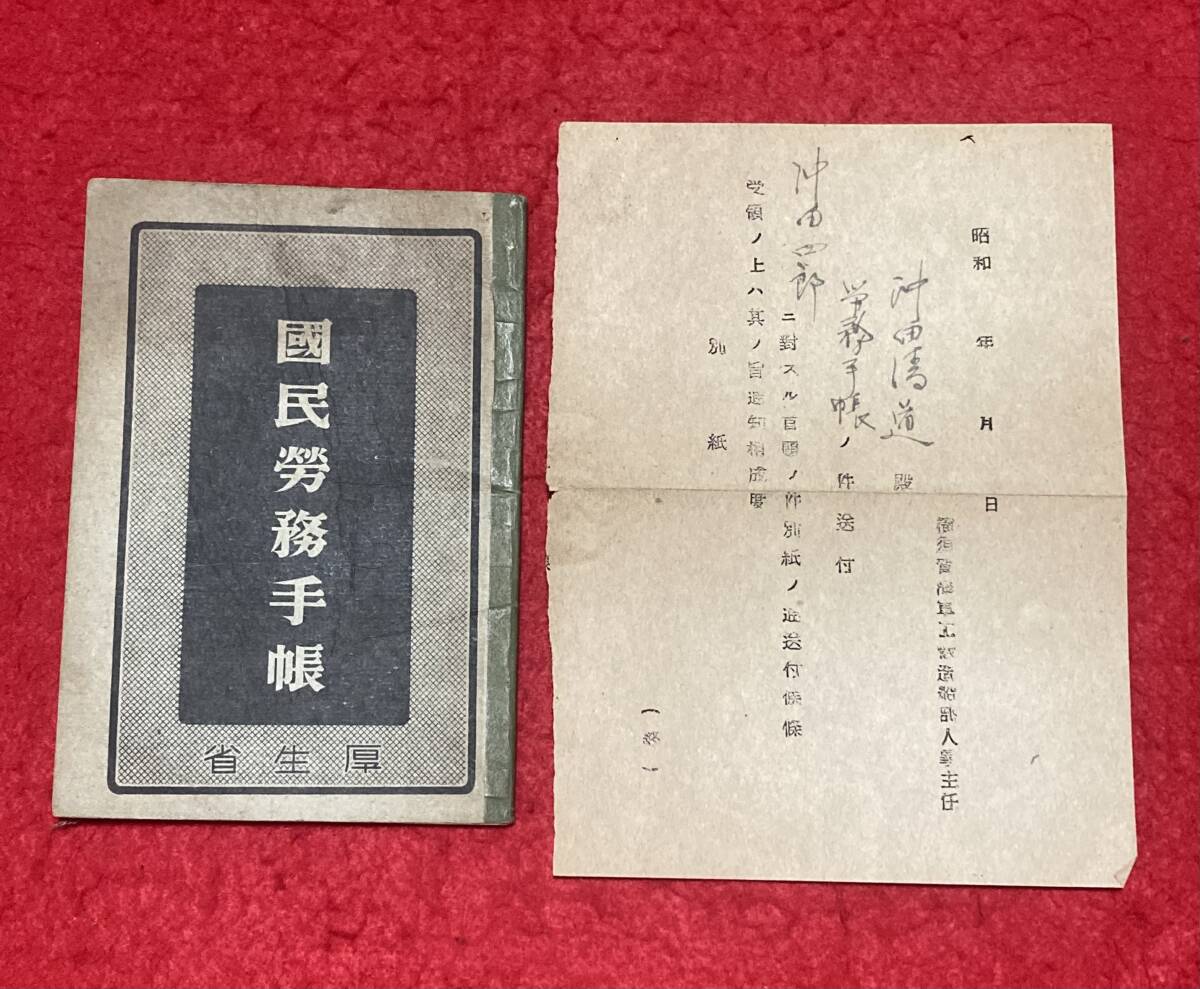 國民勞務手帳
厚生省
昭和 年 月 日
人事主任
沖田清道 殿
労務手帳ノ件送付
沖田四郎ニ對スルノ件別紙ノ通送付候條
受領ノ上ハ其ノ旨通知相成度
別紙